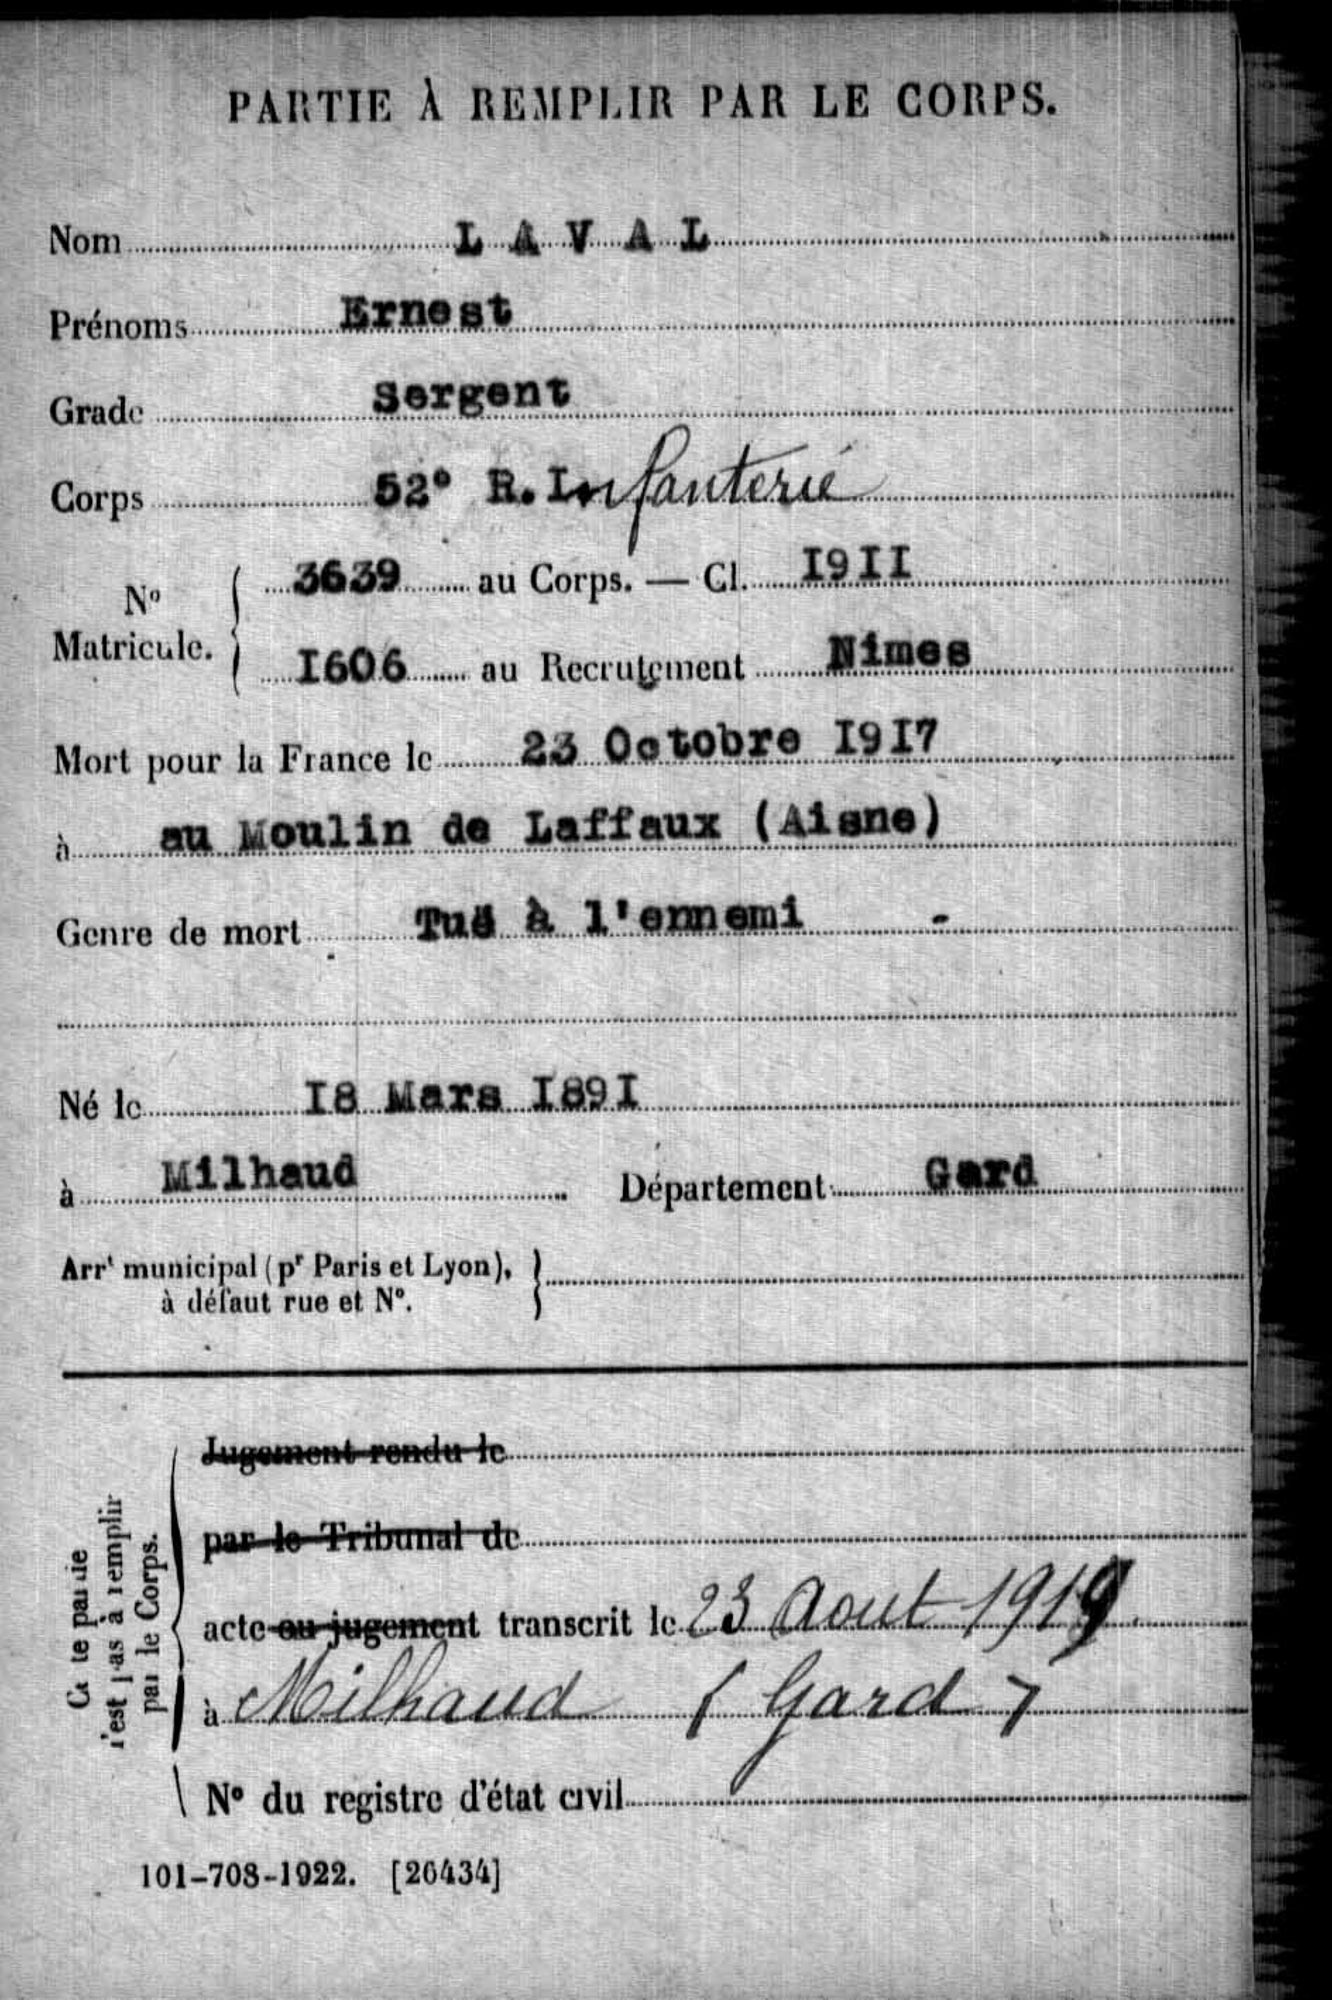 PARTIE À REMPLIR PAR LE CORPS.
Nom LAVAL
Prénoms Ernest
Grade Sergent
Corps 52° R. Infanterie
N° Matricule. 3639 au Corps. — Cl. I9II
I606 au Recrutement Nimes
Mort pour la France le 23 Octobre I9I7
à au Moulin de Laffaux (Aisne)
Genre de mort Tué à l'ennemi -
Né le I8 Mars I89I
à Milhaud Département Gard
Arr^t municipal (p^r Paris et Lyon), à défaut rue et N°.
Jugement rendu le
par le Tribunal de
acte ou jugement transcrit le 23 Aout 1919.
à Milhaud (Gard)
N° du registre d'état civil
Cette partie
n'est pas à remplir
par le Corps.
101-708-1922. [26434]